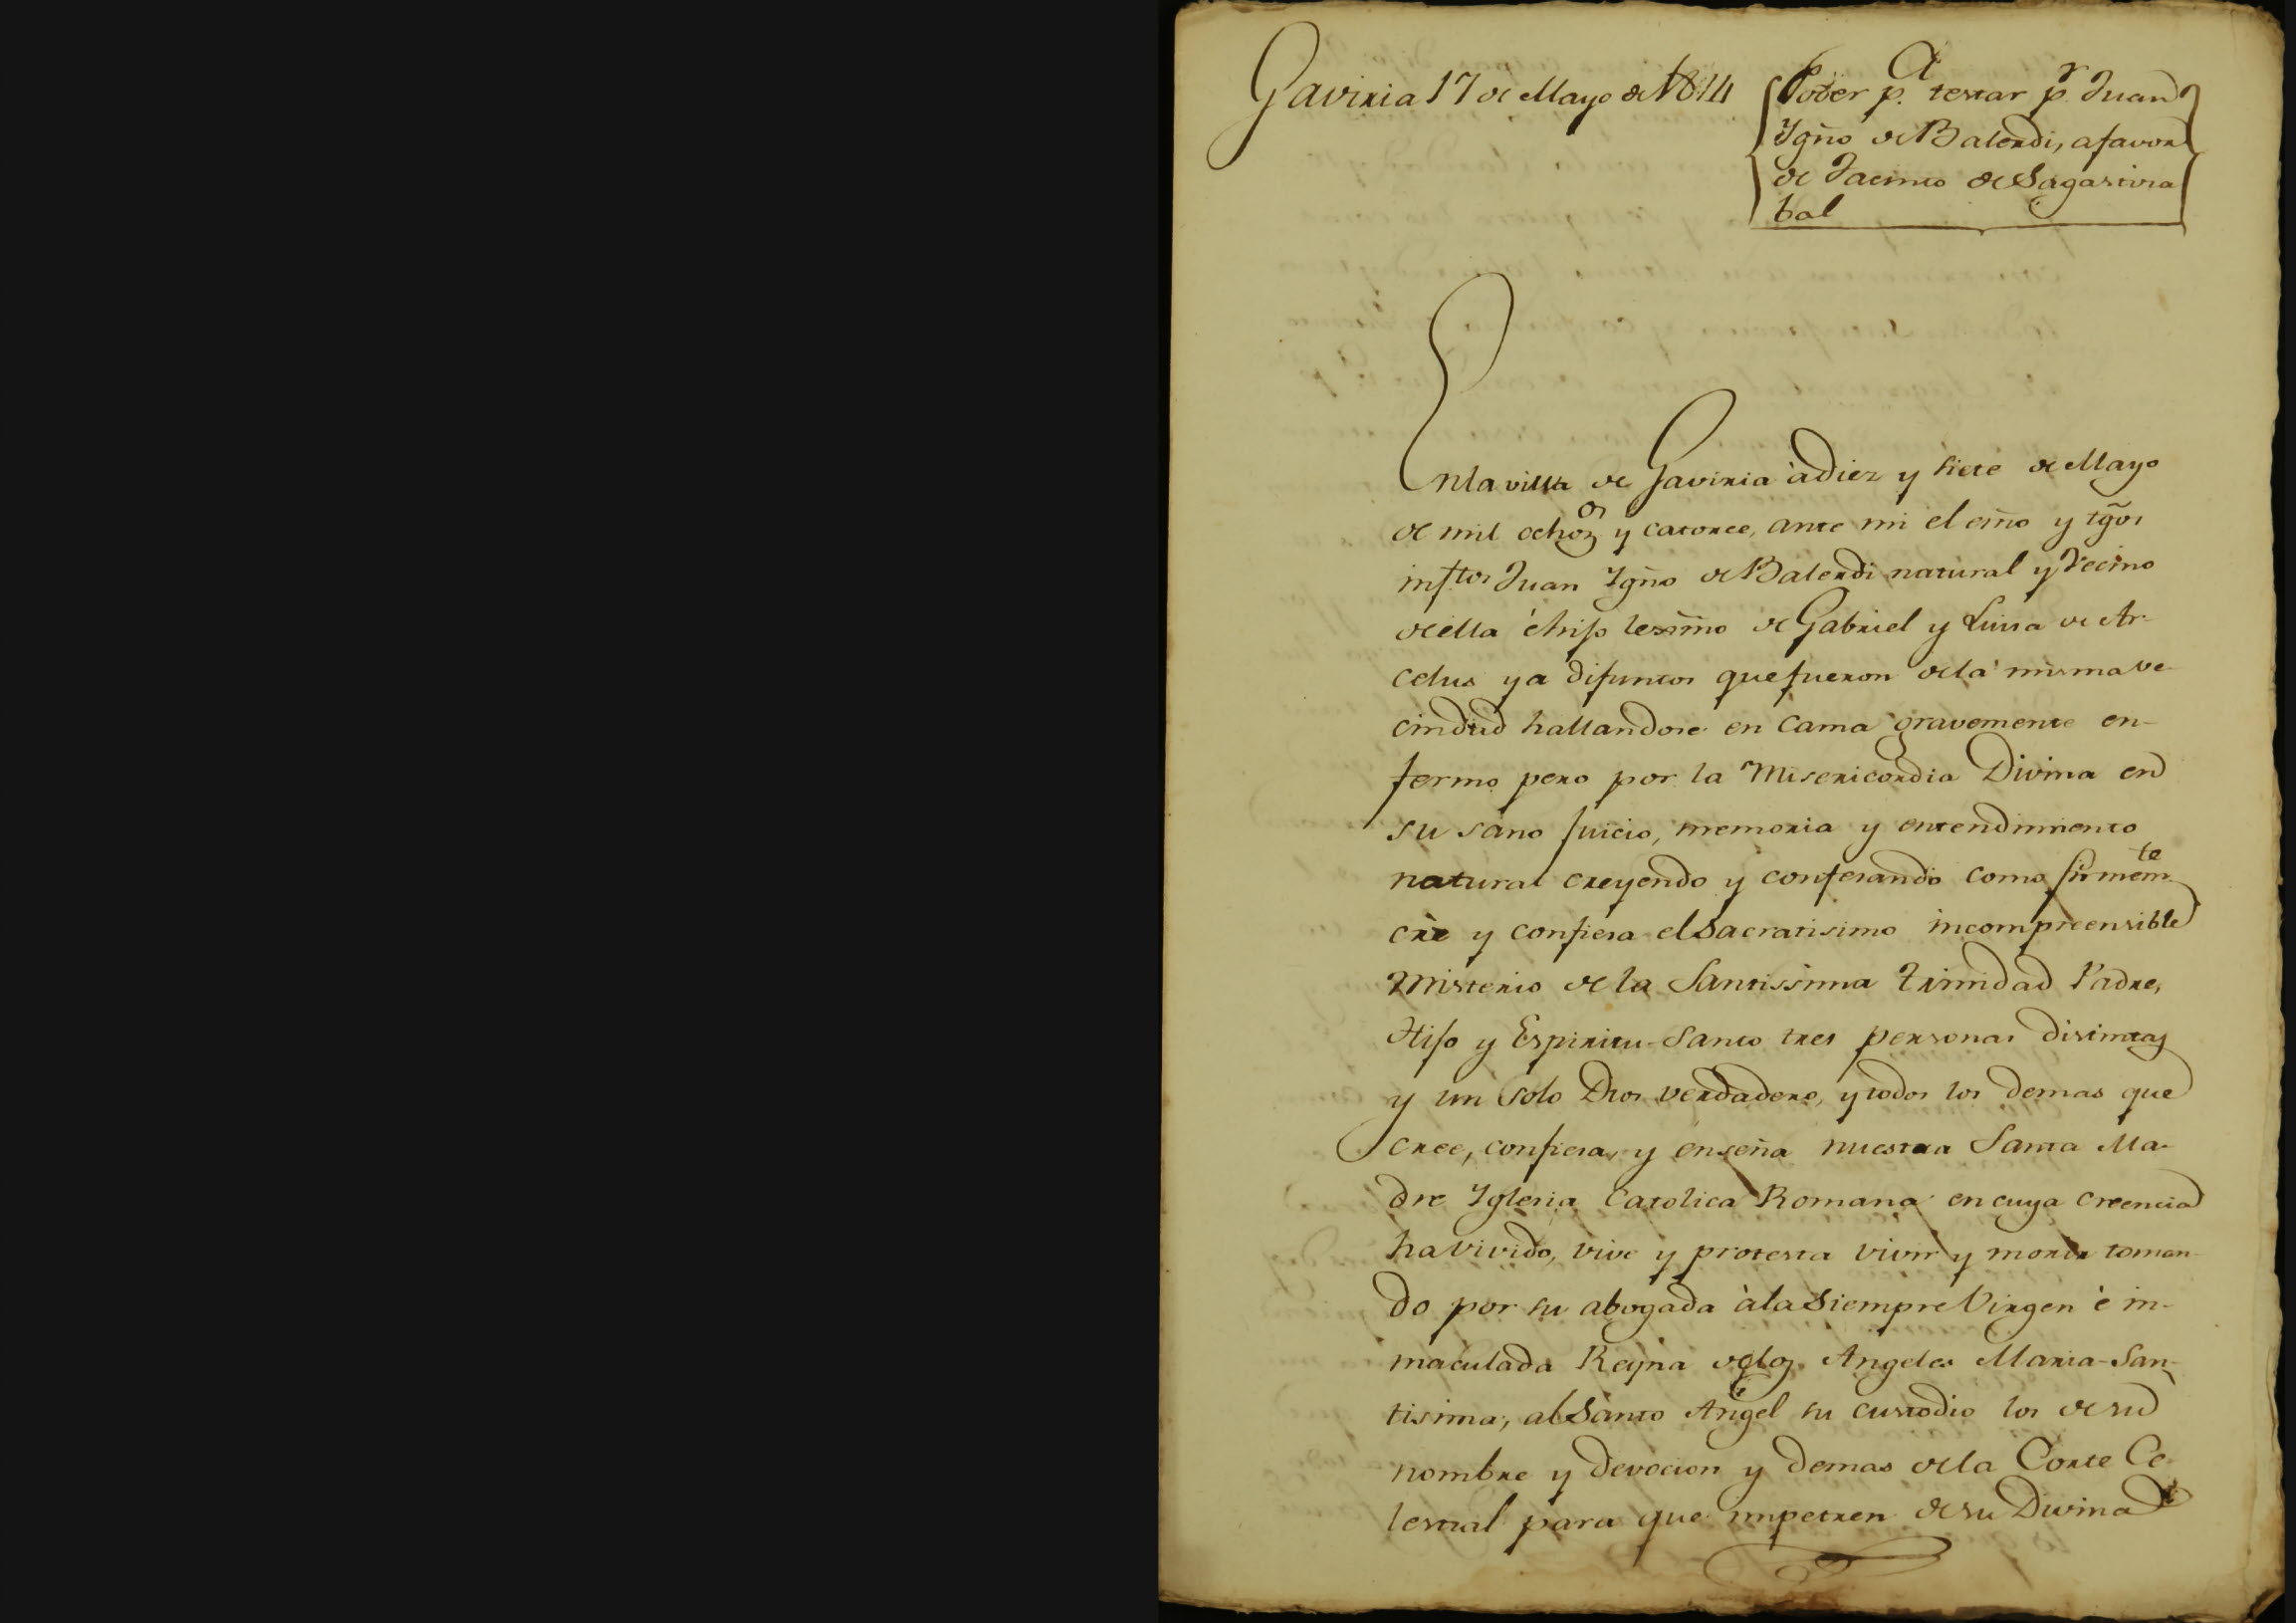 Gaviria 17 de Mayo de 1814
Poder p.ª testar p.r Juan
Ygño de Balerdi, a favor
de Jacinto de Sagastiza
bal
En la villa de Gaviria à diez y siete de Mayo
de mil ochoz.os y catorce, ante mi el esño y tgõs
infrtos Juan Ygño de Balerdi natural y vecino
de ella è hijo lexmo de Gabriel y Luisa de Ar-
celus ya difuntos que fueron de la misma ve-
cindad hallandose en cama gravemente en-
fermo pero por la Misericordia Divina en
su sano juicio, memoria y entendimiento
natural creyendo y confesando como firmem.te
crèe y confiesa el Sacratisimo incompreensible
Misterio de la Santissima Trinidad Padre,
Hijo y Espiritu-Santo tres personas distintas
y un solo Dios verdadero, y todos los demas que
cree, confiesa, y enseña nuestra Santa Ma-
dre Yglesia Catolica Romana en cuya creencia
ha vivido, vive y protesta vivir y morir toman-
do por su abogada à la Siempre Virgen è in-
maculada Reyna de los Angeles Maria-San-
tisima, al Santo Angel su custodio los de su
nombre y devocion y demas de la Corte Ce-
lestial para que impetren de su Divina